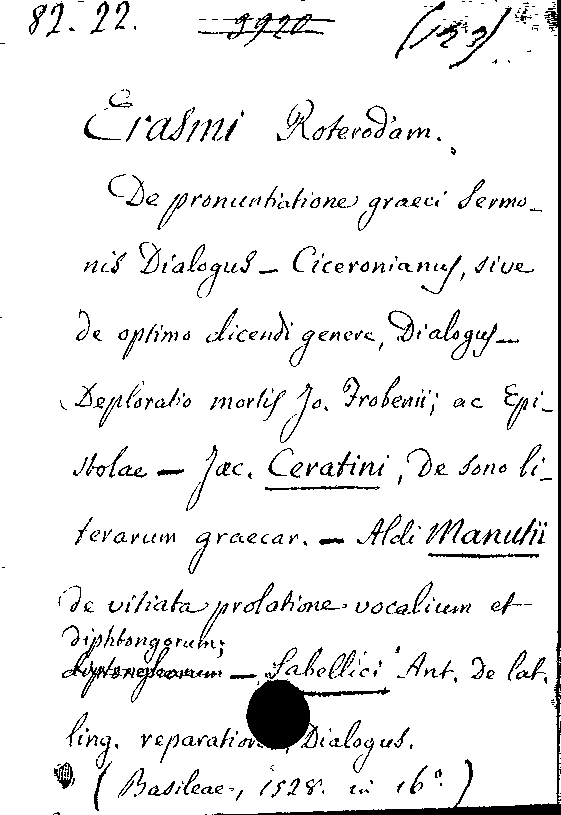 82. 22. 3920 (123)
Erasmi Roterodam.
De pronuntiatione graeci Sermo-
nis Dialogus – Ciceronianus, sive
de optimo dicendi genere, Dialogus –
Deploratio mortis Jo. Frobenii; ac Epi-
stolae – Jac. Ceratini, De sono li-
terarum graecar. – Aldi Manutii
de vitiata prolatione vocalium et
diphtongorum;
– Sabellici Ant. De lat.
ling. reparatione, Dialogus.
(Basileae, 1528. in 16°.)